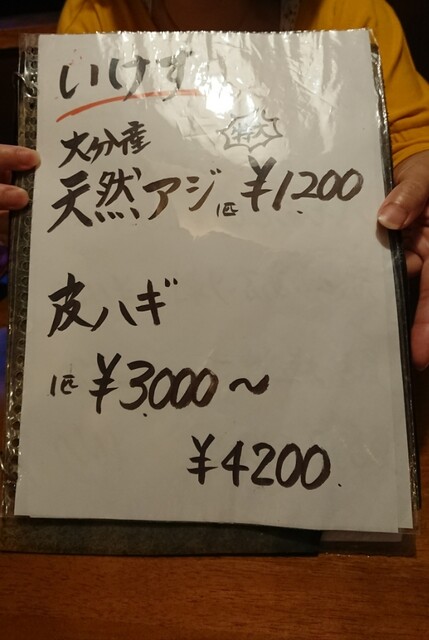 いけす
特大
大分産
天然アジ 1匹 ¥1,200
皮ハギ
1匹 ¥3,000～
¥4200.